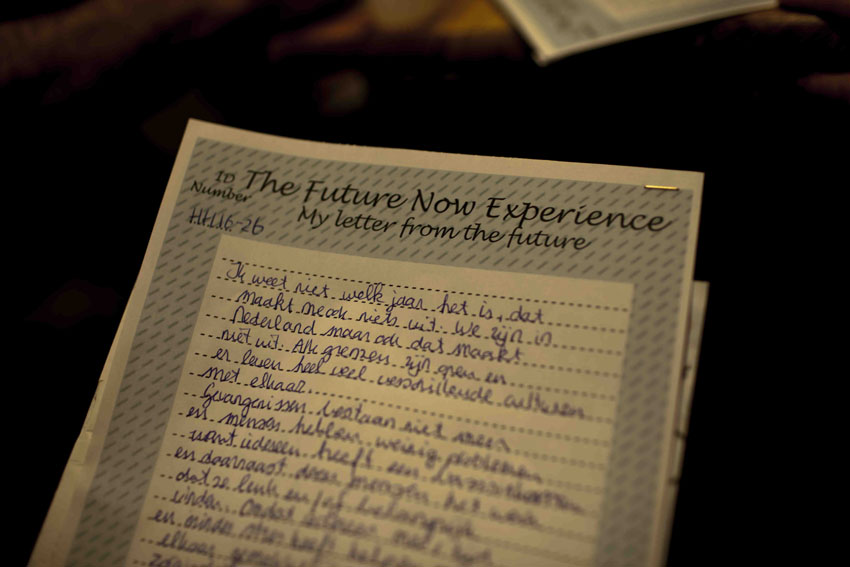 ID
Number
The Future Now Experience
My letter from the future
HH16-26
Ik weet niet welk jaar het is, dat
maakt me ook niets uit. We zijn in
Nederland maar ook dat maakt
niet uit. Alle grenzen zijn open en
er leven heel veel verschillende culturen
met elkaar.
Gevangenissen bestaan niet meer
en mensen hebben weinig problemen
want iedereen heeft een basisinkomen
en daarnaast doen mensen het werk
dat ze leuk en/of belangrijk
vinden. Omdat
en minder stress heeft
elkaar